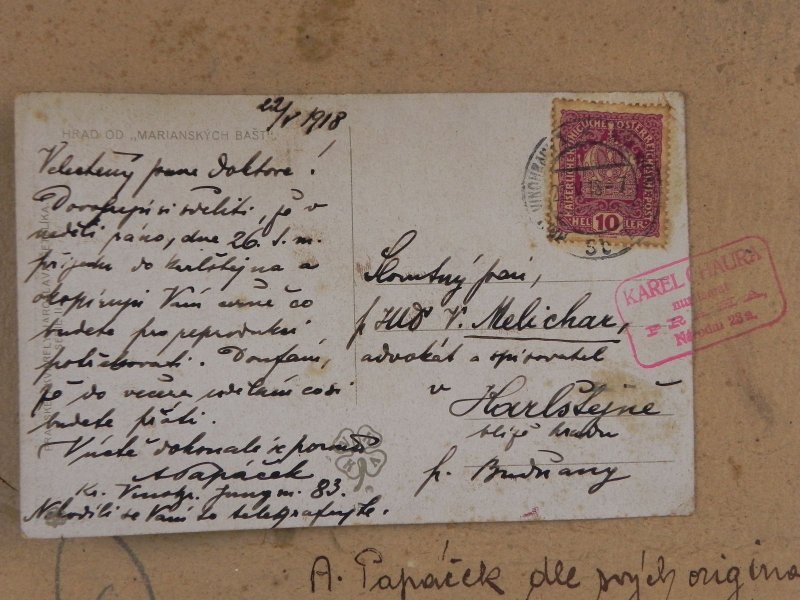 22/V 1918
HRAD OD „MARIANSKÝCH BAŠT"
Velectěný pane doktore!
Dovoluji si sděliti, že v
neděli ráno, dne 26. t. m.
přijedu do Karlštejna a
okopíruji Vám určně co
budete pro reprodukci
potřebovati. Doufám,
že do večera udělám co si
budete přáti.
V úctě dokonalé
A Papáček
Kr. Vinohr. Jungm. 83.
Nehodí-li se Vám to telegrafujte.
KAISERLICHE KÖNIGLICHE ÖSTERREICHISCHE POST
HELLER 10 HELLER
Slovutný pan,
p. JUDr V. Melichar,
advokát a spisovatel
v
Karlštejně
blíže hradu
p. Budňany
KAREL CHAURA
PRAHA,
Národní 28 n.
A. Papáček dle svých origina